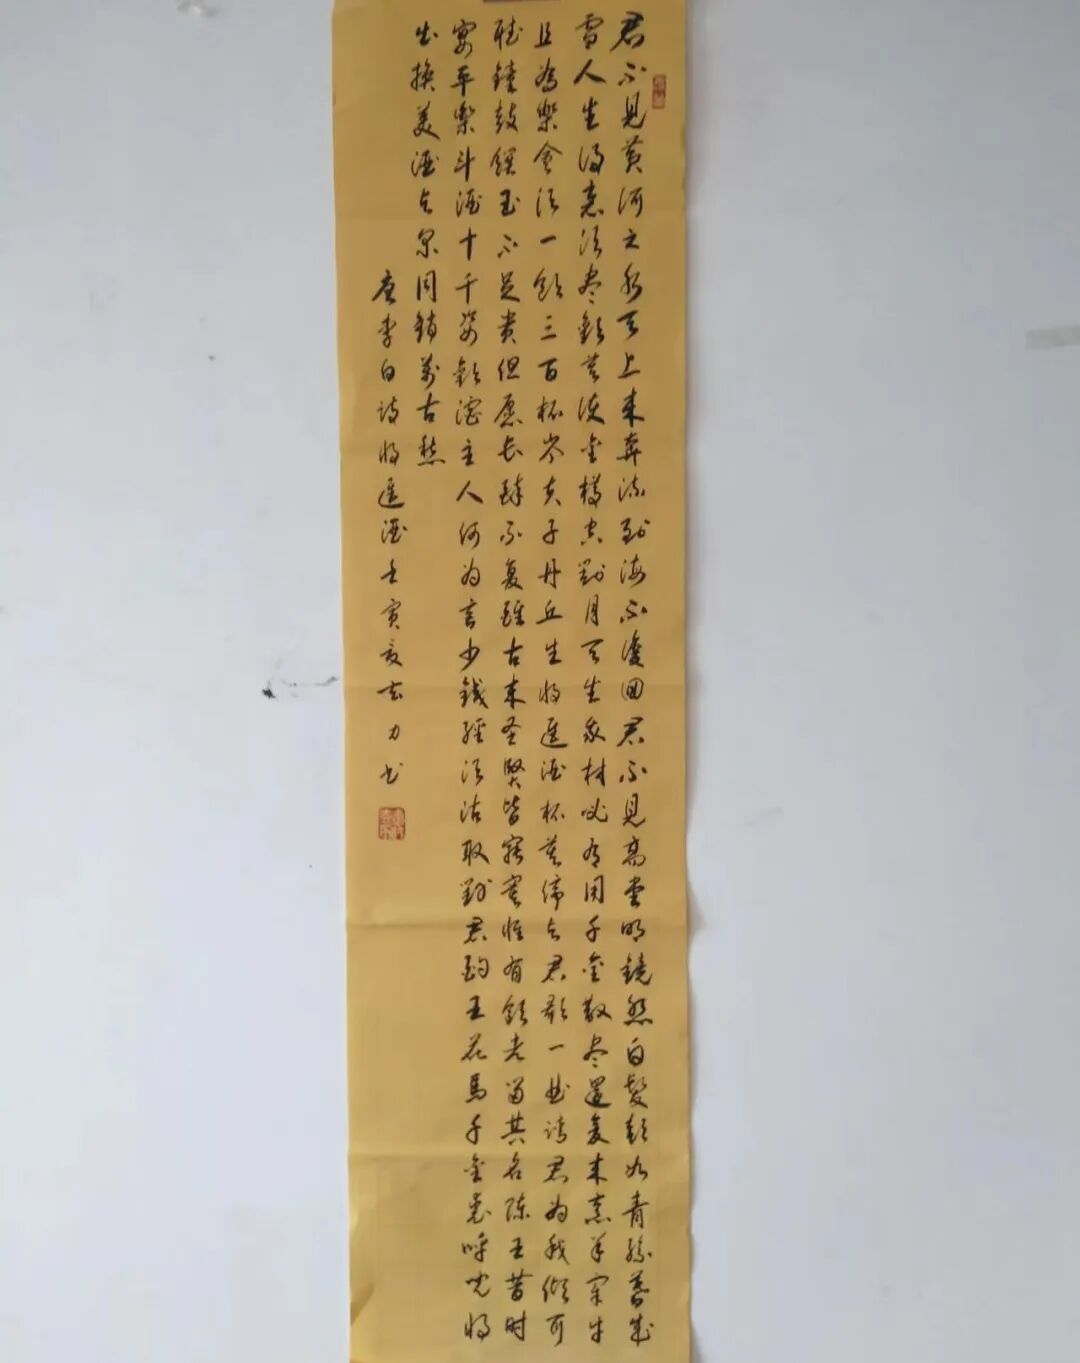 君不见黄河之水天上来奔流到海不复回君不见高堂明镜悲白发朝如青丝暮成
雪人生得意须尽欢莫使金樽空对月天生我材必有用千金散尽还复来烹羊宰牛
且为乐会须一饮三百杯岑夫子丹丘生将进酒杯莫停与君歌一曲请君为我倾耳
听钟鼓馔玉不足贵但愿长醉不复醒古来圣贤皆寂寞惟有饮者留其名陈王昔时
宴平乐斗酒十千恣欢谑主人何为言少钱径须沽取对君酌五花马千金裘呼儿将
出换美酒与尔同销万古愁
唐李白诗将进酒壬寅夏志力书